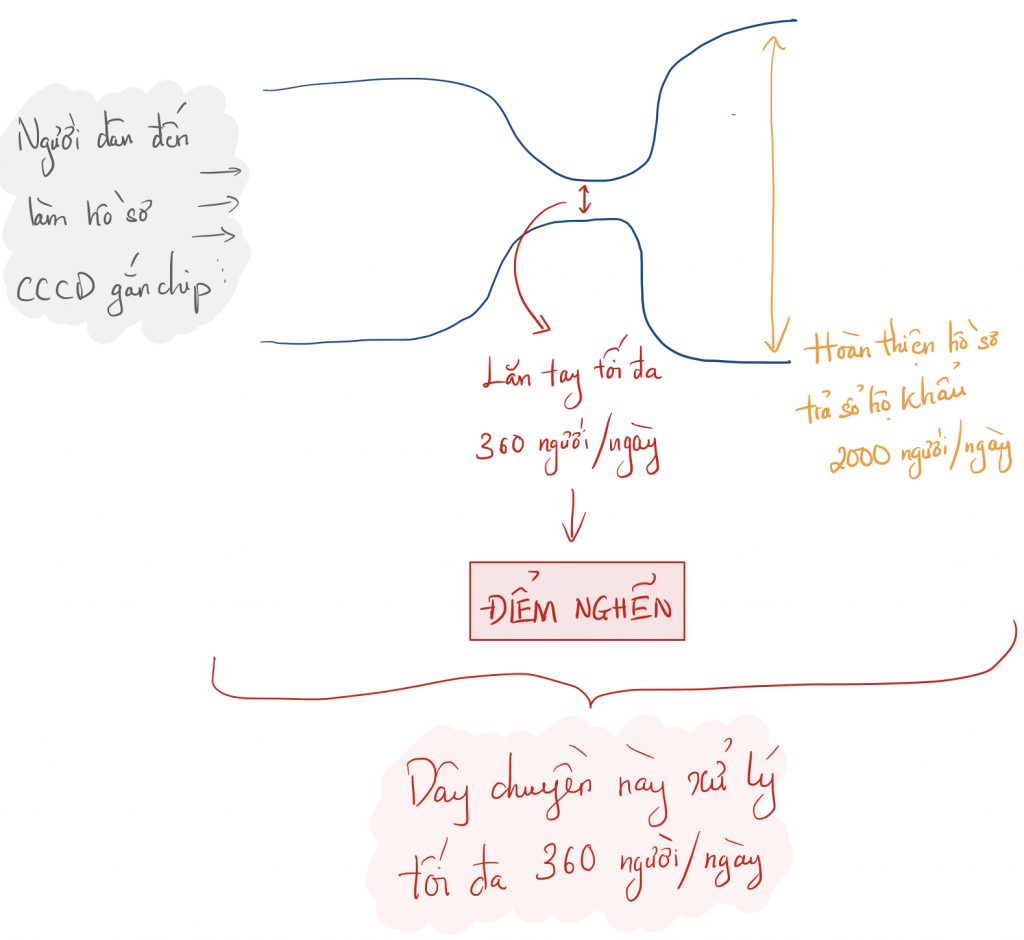 Người dân đến
làm hồ sơ
CCCD gắn chip
Lăn tay tối đa
360 người/ngày
Hoàn thiện hồ sơ
trả sổ hộ khẩu
2000 người/ngày
ĐIỂM NGHẼN
Dây chuyền này xử lý
tối đa 360 người/ngày